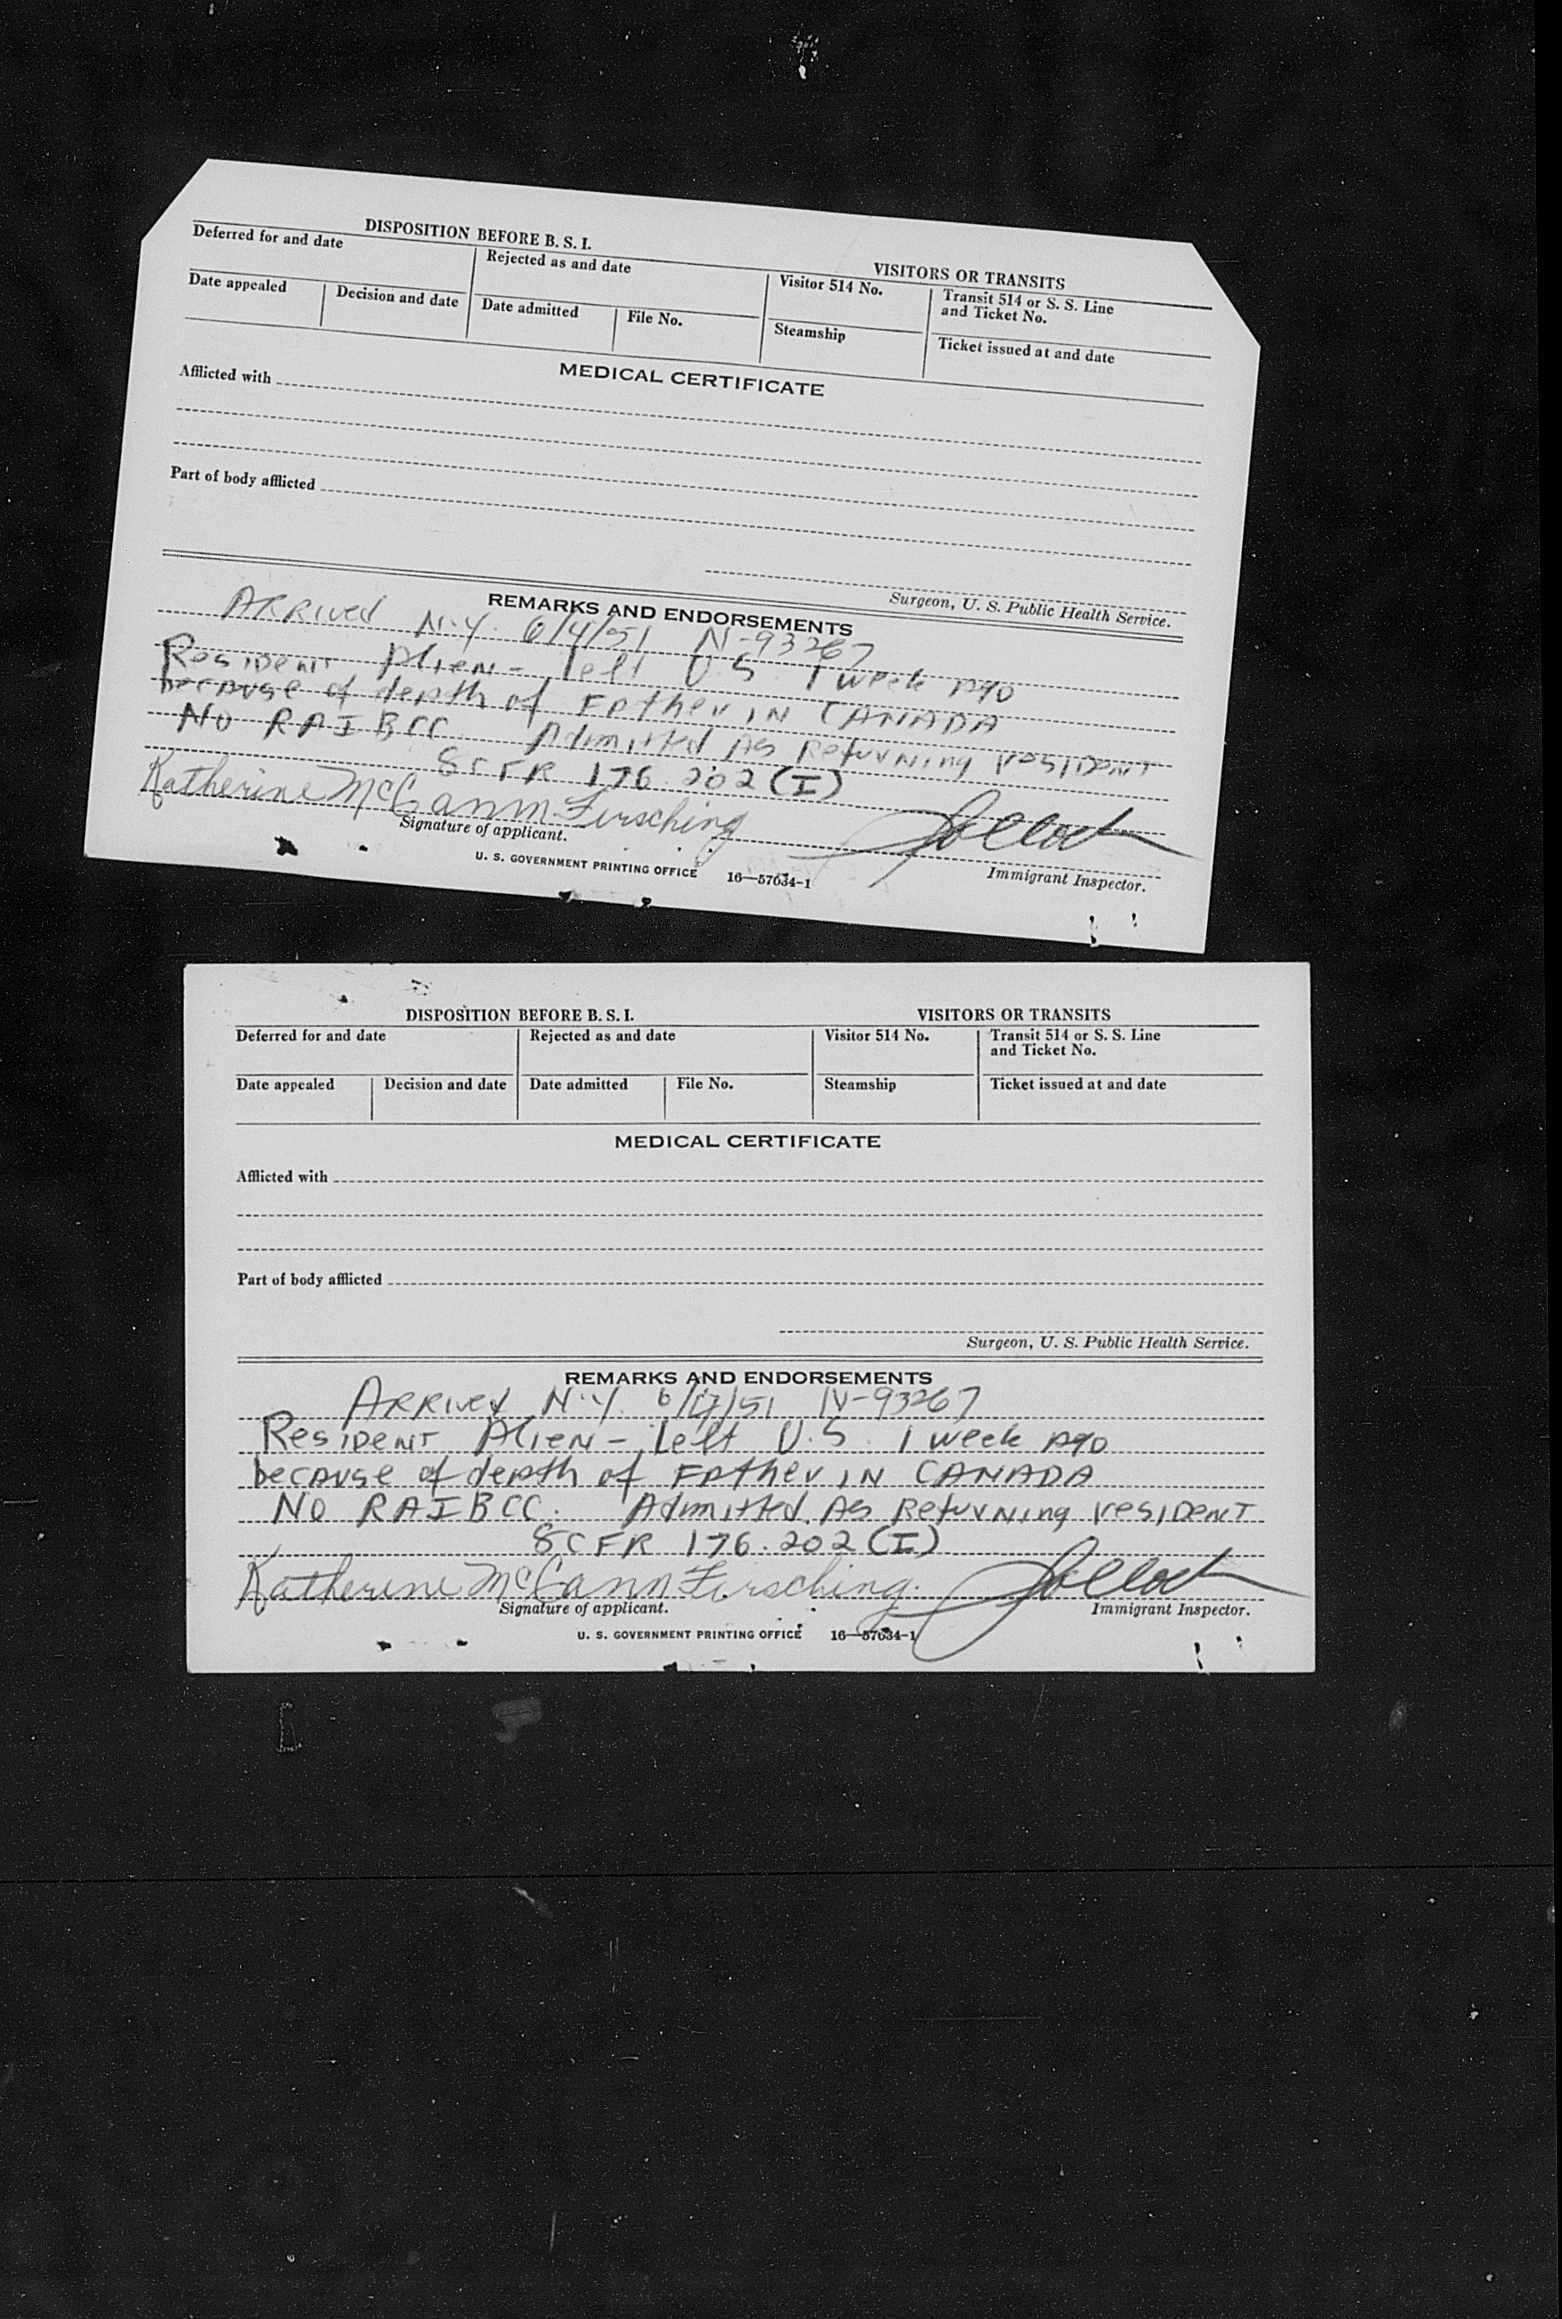 DISPOSITION BEFORE B. S. I.
VISITORS OR TRANSITS
Deferred for and date
Rejected as and date
Visitor 514 No.
Transit 514 or S. S. Line
and Ticket No.
Date appealed
Decision and date
Date admitted
File No.
Steamship
Ticket issued at and date
MEDICAL CERTIFICATE
Afflicted with
Part of body afflicted
Surgeon, U. S. Public Health Service.
REMARKS AND ENDORSEMENTS
ARRived N.Y. 6/4/51 N-93267
ResIDeNT Alien - left U.S. 1 week Ago
because of death of Father IN CANADA
NO RAIBCC. Admitted As Returning resIDeNT
8 CFR 176.202 (I)
Katherine McCann Firsching
Pollock
Signature of applicant.
Immigrant Inspector.
U. S. GOVERNMENT PRINTING OFFICE 16—57634-1
DISPOSITION BEFORE B. S. I.
VISITORS OR TRANSITS
Deferred for and date
Rejected as and date
Visitor 514 No.
Transit 514 or S. S. Line
and Ticket No.
Date appealed
Decision and date
Date admitted
File No.
Steamship
Ticket issued at and date
MEDICAL CERTIFICATE
Afflicted with
Part of body afflicted
Surgeon, U. S. Public Health Service.
REMARKS AND ENDORSEMENTS
ARRived N.Y. N-93267
ResIDeNT Alien - left U.S. 1 week Ago
because of death of Father IN CANADA
NO RAIBCC. Admitted As Returning resIDeNT
8 CFR 176.202 (I)
Katherine McCann Firsching.
Pollock
Signature of applicant.
Immigrant Inspector.
U. S. GOVERNMENT PRINTING OFFICE 16—57634-1